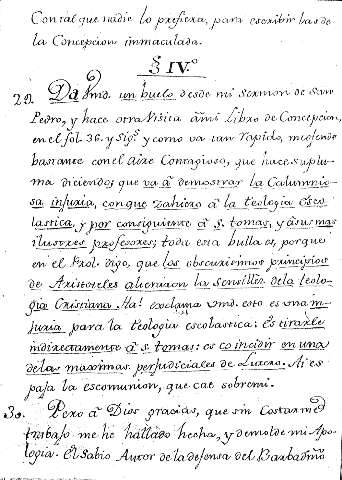 Con tal que nadie lo prefiera, para escribir las de
la Concepcion immaculada.
§ IV.º
29. Da Vmd. un buelo desde mi Sermon de San
Pedro, y hace otra Visita à mi Libro de Concepcion,
en el fol. 36. y Sigs. y como va tan rapido, me ofende
bastante con el Aire Contagioso, que hace su plu-
ma diciendo que va à demostrar la Calumnio-
sa injuria, con que zahiero à la teologia Esco-
lastica, y por consiguiente à S. tomas, y à sus mas
ilustres profesores; toda esta bulla es, porque
en el Prol. digo, que los obscurisimos principios
de Aristoteles alteraron la sensillez de la teolo-
gia Cristiana. Ha! exclama Vmd. esto es una in-
juria para la teologia escolastica: es tirarle
indirectamente à S. tomas: es coincidir en una
de las maximas perjudiciales de Lutero. Ai es
paja la escomunion, que cae sobre mi.
30. Pero à Dios gracias, que sin Costarme
trabajo me he hallado hecha, y de molde mi Apo-
logia. El Sabio Autor de la defensa del Barbadiño